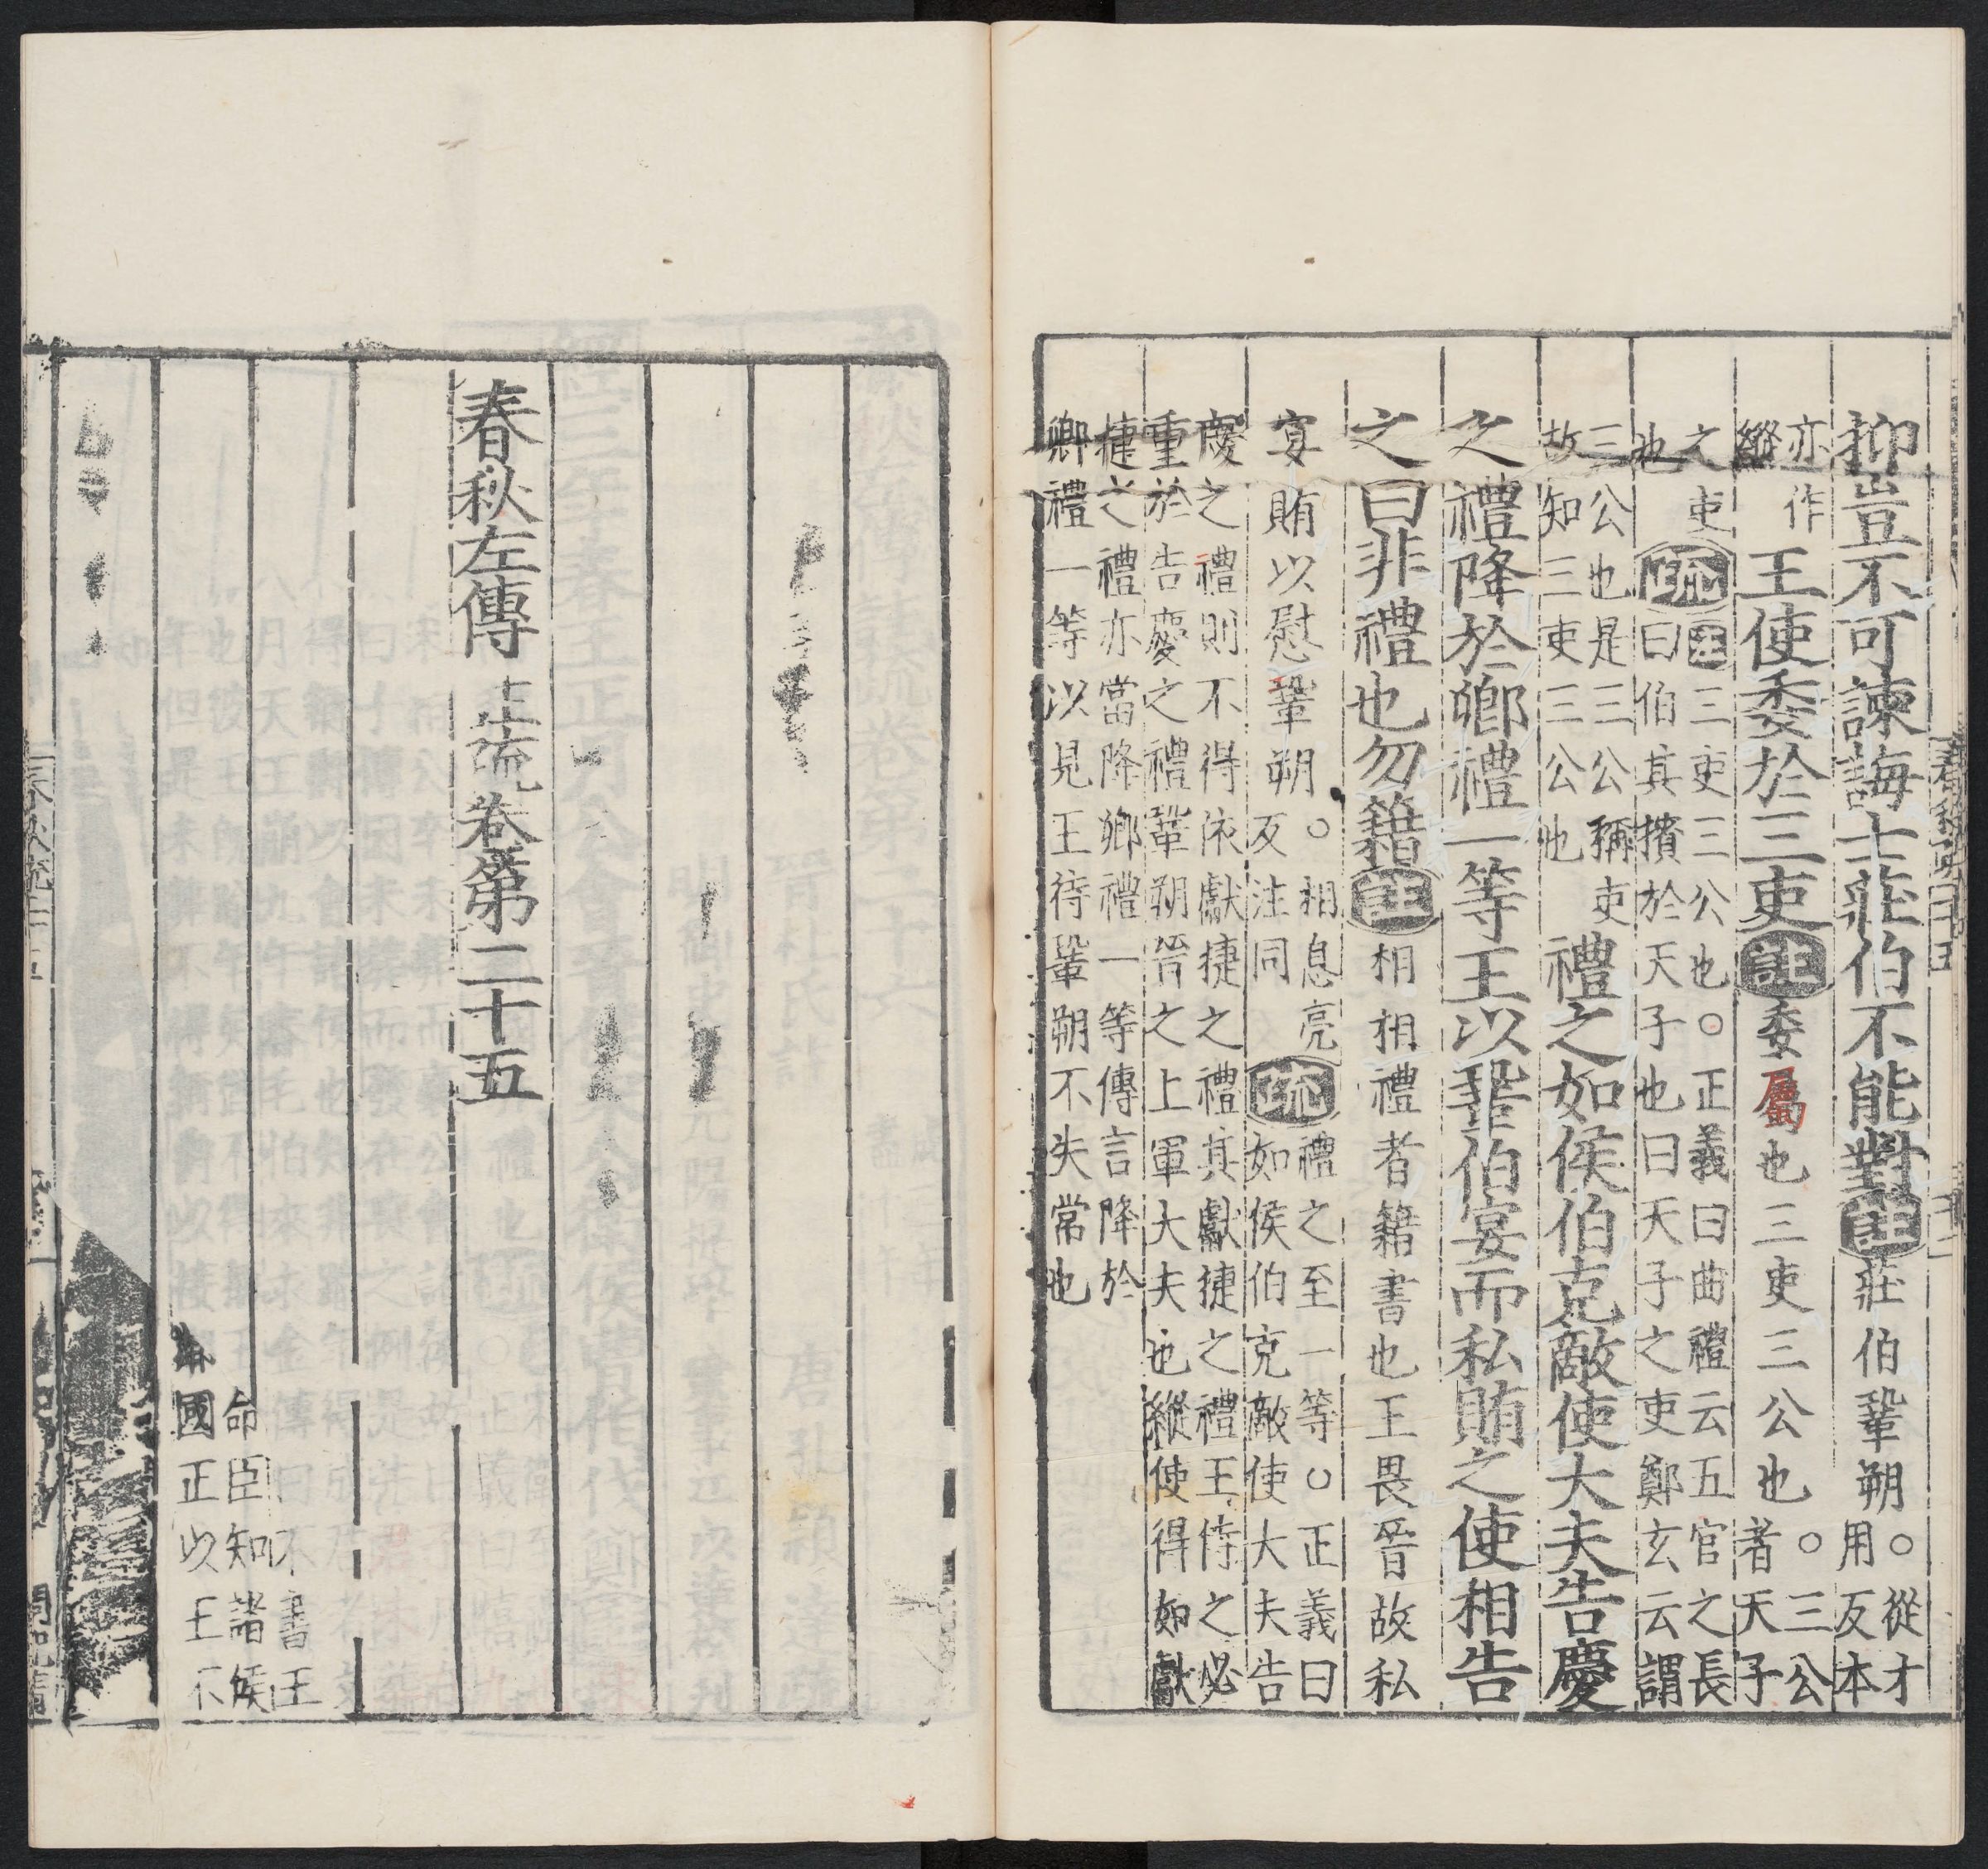 抑豈不可諫誨士莊伯不能對註莊伯鞏朔。從才用反本
亦作縱王使委於三吏註委屬也三吏三公也。三公者天子
之吏也疏註三吏三公也。正義曰曲禮云五官之長曰伯其擯於天子也曰天子之吏鄭玄云謂
三公也是三公稱吏故知三吏三公也禮之如侯伯克敵使大夫告慶
之禮降於卿禮一等王以鞏伯宴而私賄之使相告
之曰非禮也勿籍註相相禮者籍書也王畏晉故私
宴賄以慰鞏朔。相息亮反注同疏禮之至一等。正義曰如侯伯克敵使大夫告
慶之禮則不得依獻捷之禮其獻捷之禮王待之必重於告慶之禮鞏朔晉之上軍大夫也縱使得如獻
捷之禮亦當降卿禮一等傳言降於卿禮一等以見王待鞏朔不失常也
春秋左傳註疏卷第二十五
不書王
命臣知諸侯
國正以王不